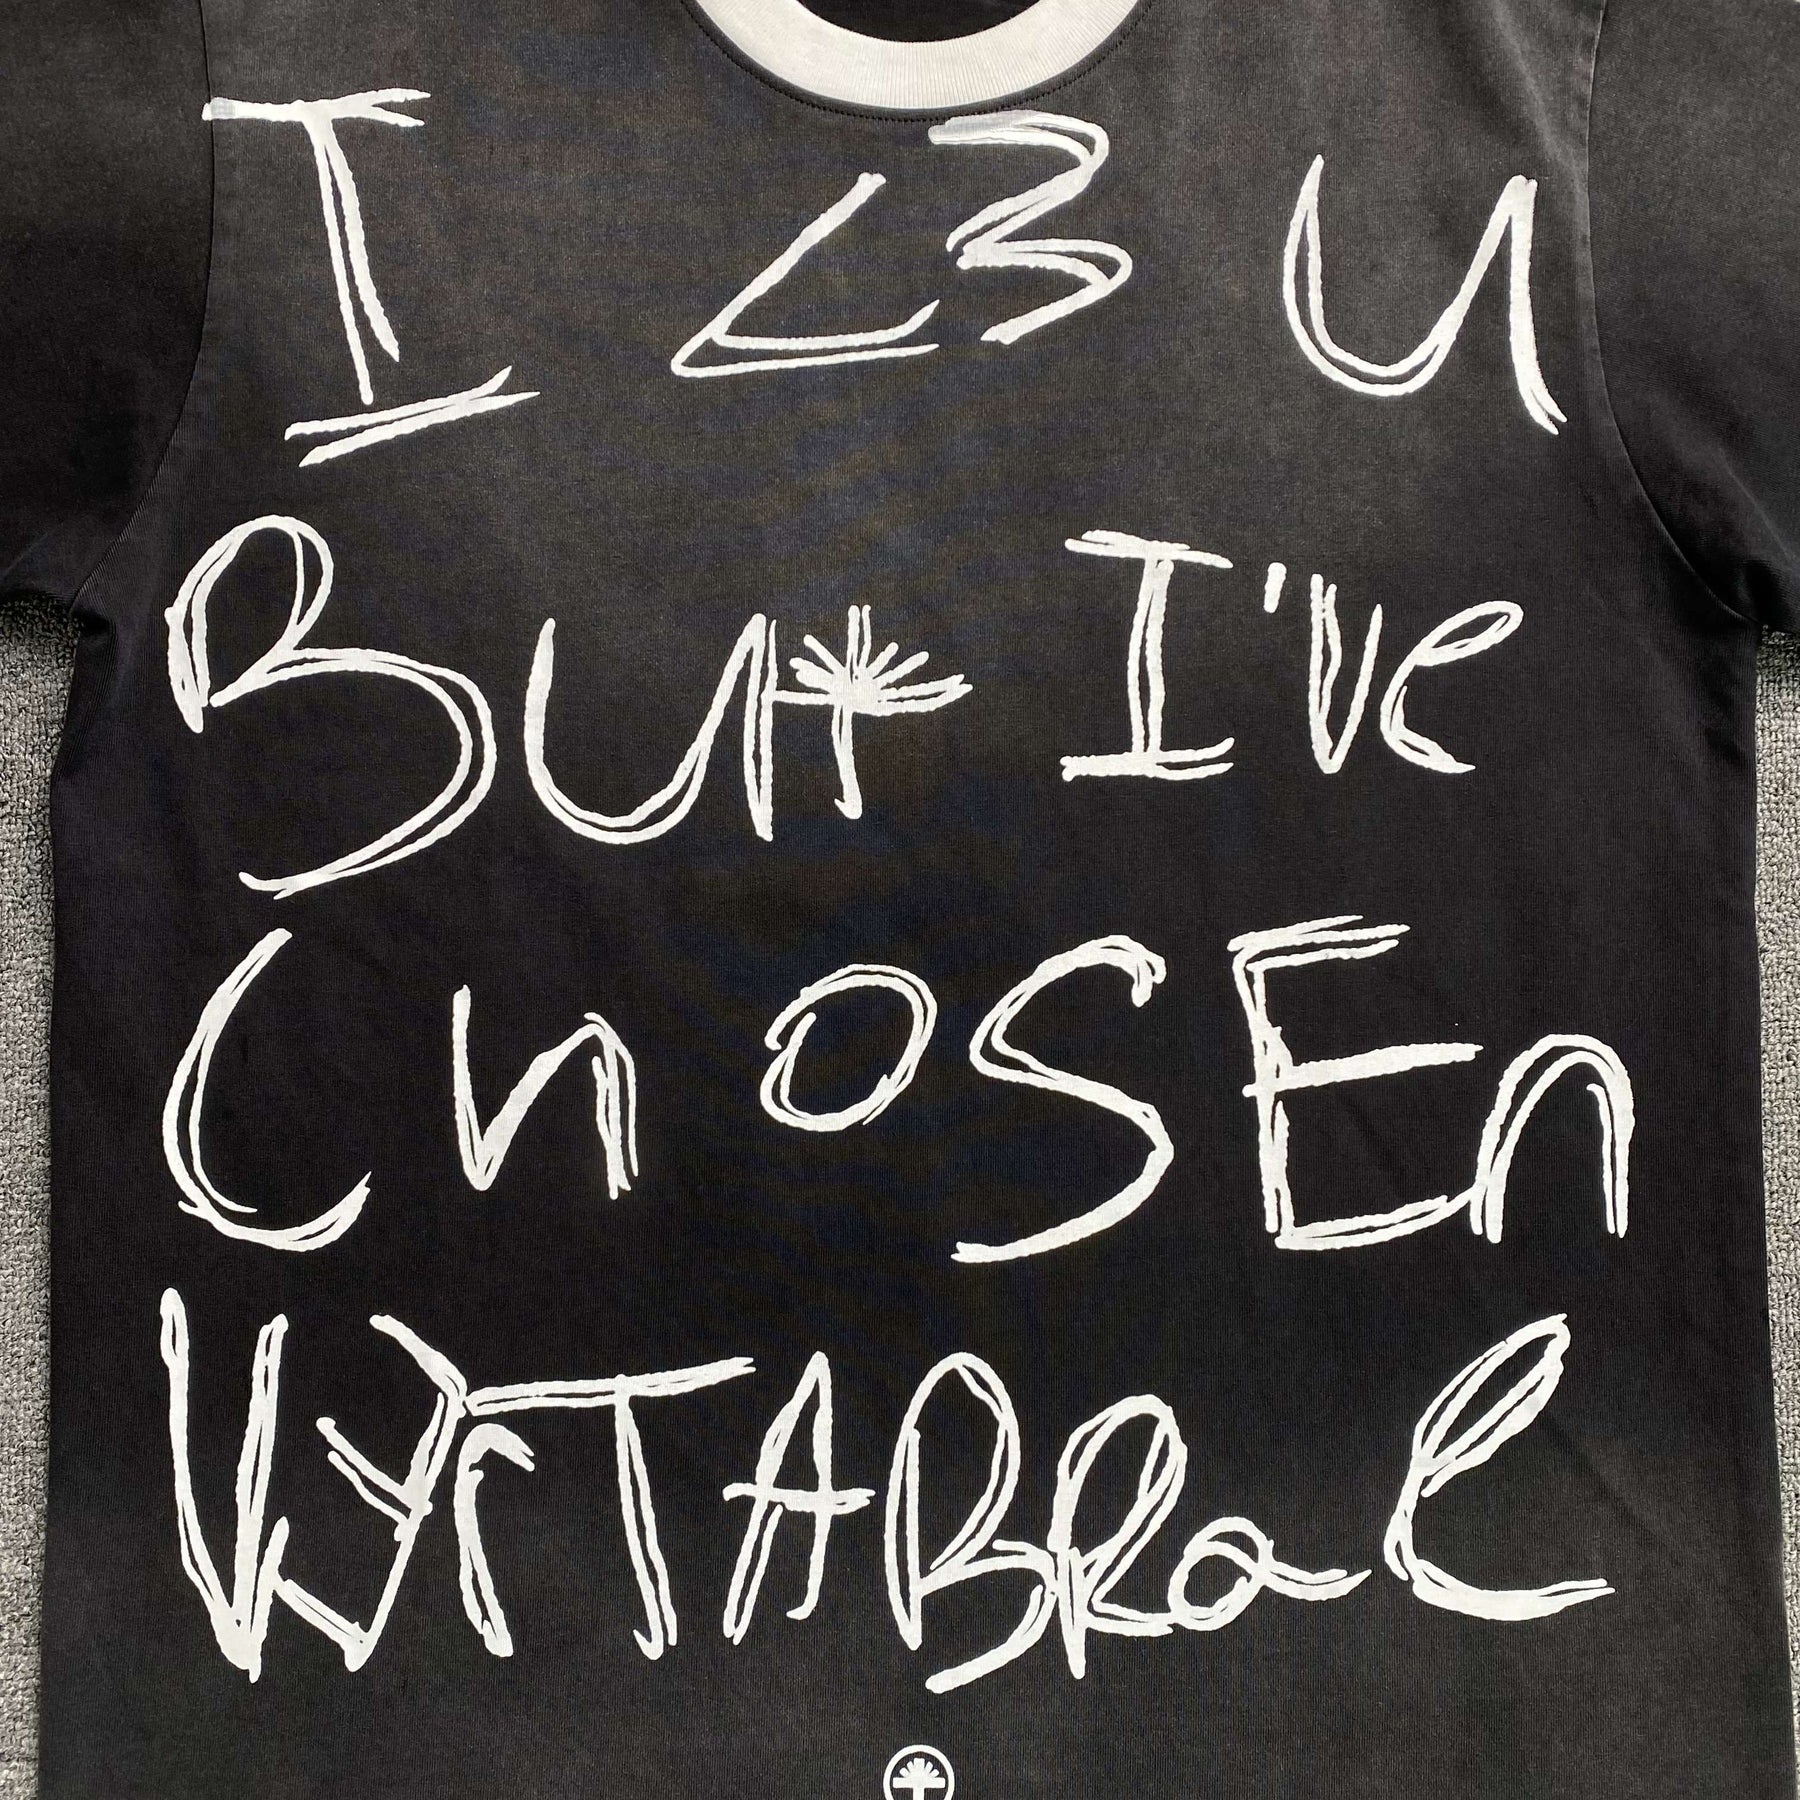 I <3 U
But I've
ChOSEn
VyrTABRae